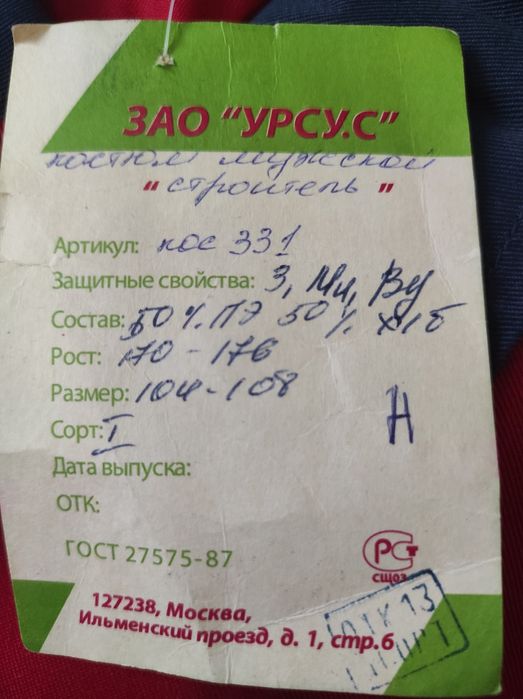 ЗАО "УРСУ.С"
костюм мужской
"строитель"
Артикул: кос 331
Защитные свойства: З, Ми, Ву
Состав: 50% ПЭ 50% х/б
Рост: 170-176
Размер: 104-108
Сорт: I
Н
Дата выпуска:
ОТК:
ГОСТ 27575-87
РСТ
СЩОЗ
127238, Москва,
Ильменский проезд, д. 1, стр.6
ОТК 13